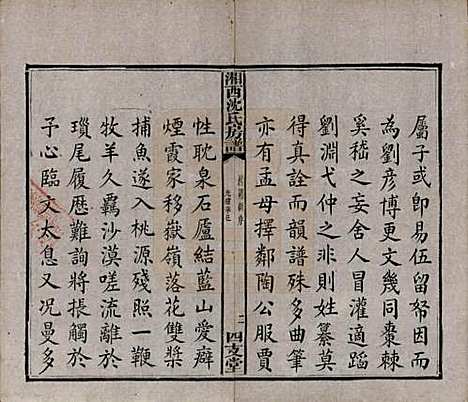 屬子或即易伍留帑因而
為劉彥博更文幾同棗棘
奚嵇之妄舍人冒灌適蹈
淵源弋仲之非則姓纂莫
得真詮而韻譜殊多曲筆
亦有孟母擇鄰陶公服賈
湘西沈氏房譜
二
四支堂
性耽泉石廬結藍山愛癖
煙霞家移嶽嶺落花雙槳
捕魚遂入桃源殘照一鞭
牧羊久羈沙漠嗟流離於
瑣尾履歷難詢將振觸於
予心臨文太息又况曼多